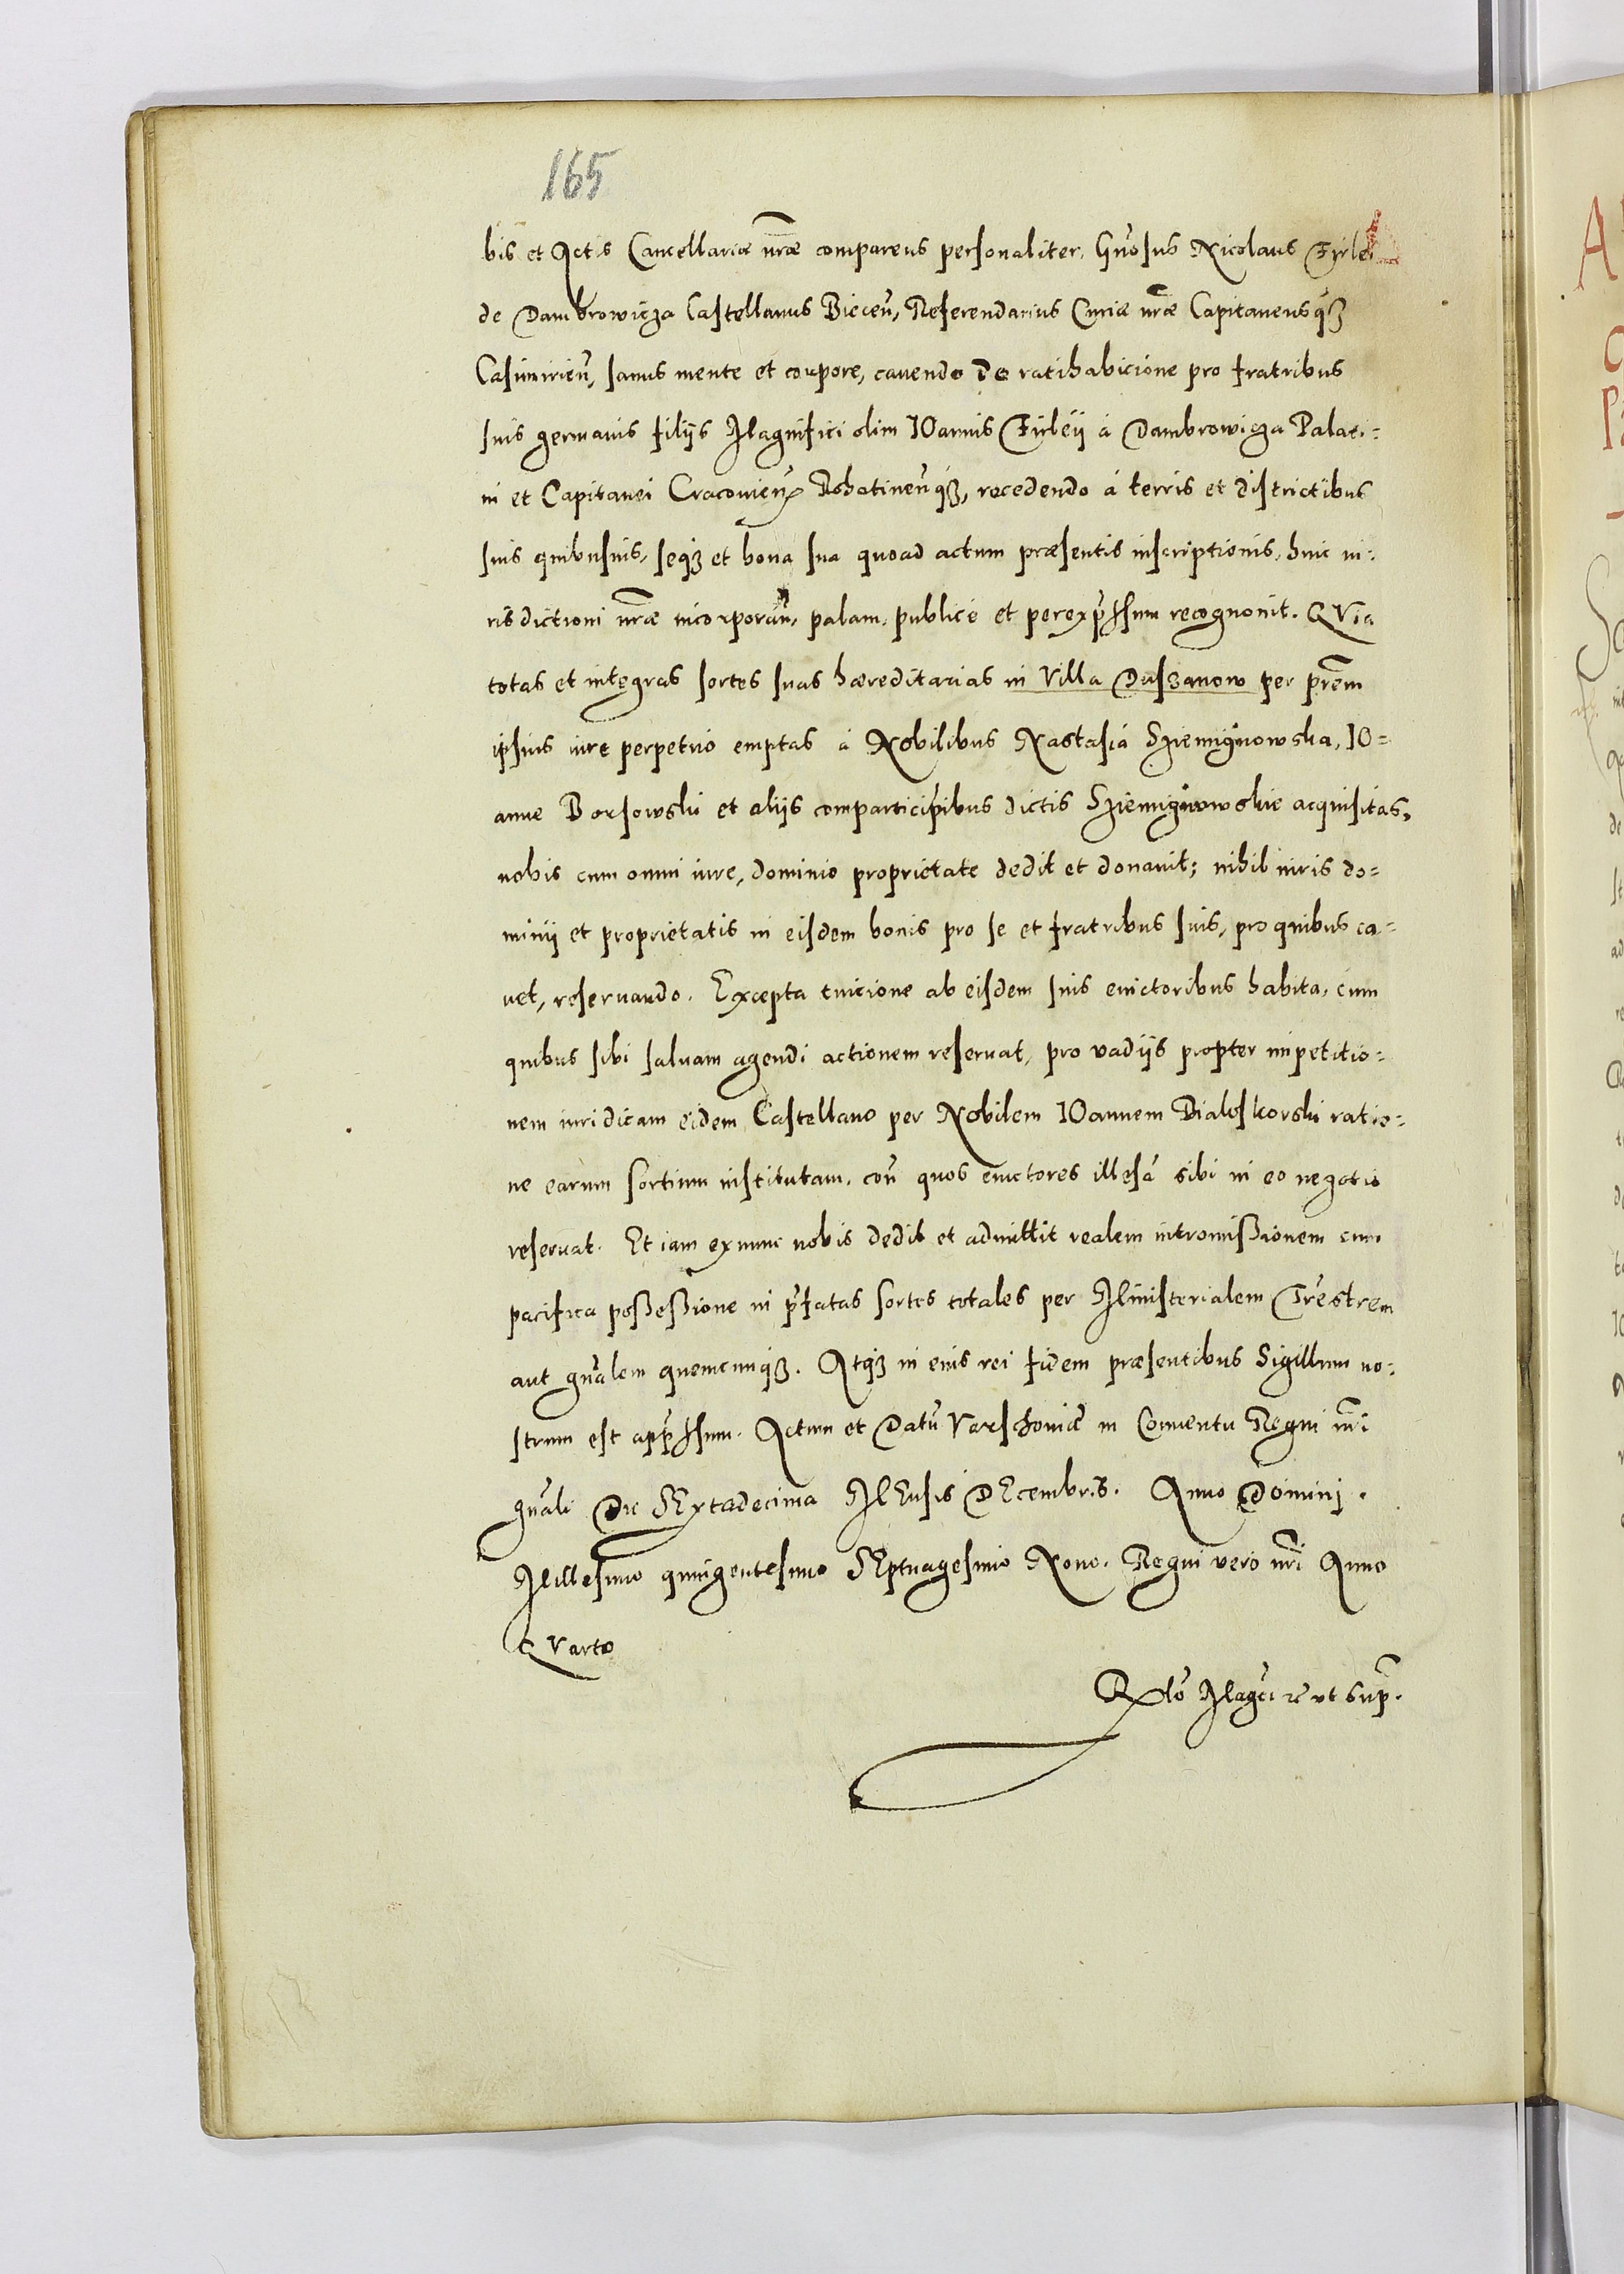 165
bis et Actis Cancellariæ nr̃æ comparens personaliter, Gn̄osus Nicolaus Firlei
de Dambrowicza Castellanus Bieceñ, Referendarius Curiæ nr̃æ Capitaneusq̃ꝫ
Casimirieñ, sanus mente et corpore, cauendo de ratihabicione pro fratribus
suis germanis filijs Magnifici olim IOannis Firleij à Dambrowicza Palati=
ni et Capitanei Cracovieñ Rohatineñqꝫ, recedendo à terris et districtibus
suis quibusuis, seqꝫ et bona sua quoad actum præsentis inscriptionis, huic iu=
risdictioni nr̃æ incorporañ, palam, publicè et perexp̃ssum recognouit. QVia
totas et integras sortes suas hæreditarias in Villa Duszanow per pr̃em
ipsius iure perpetuo emptas à Nobilibus Nastasia Sziemignowska, IO=
anne Borsowski et alijs comparticipibus dictis Sziemignowskie acquisitas,
nobis cum omni iure, dominio proprietate dedit et donauit; nihil iuris do=
minij et proprietatis in eisdem bonis pro se et fratribus suis, pro quibus ca=
uet, reseruando. Excepta euicione ab eisdem suis euictoribus habita, cum
quibus sibi saluam agendi actionem reseruat, pro vadijs propter impetitio=
nem iuridicam eidem Castellano per Nobilem IOannem Bialoskorski ratio=
ne earum sortium institutam, coñ quos euictores illesã sibi in eo negotio
reseruat. Et iam exnunc nobis dedit et admittit realem intromißionem cum
pacifica poßeßione in p̃fatas sortes totales per Ministerialem Tr̃estrem
aut gñalem quemcunqꝫ. Atqꝫ in eius rei fidem præsentibus Sigillum no=
strum est app̃ssum. Actum et Datũ Varschouiæ in Conuentu Regni nr̃i
gñali Die SExtadecima MEnsis DEcembris. Anno Domini.
Millesimo quingentesimo SEptuagesimo Nono. Regni vero nr̃i Anno
QVarto
Rẽlo Magci rc̃ vt sup̃.